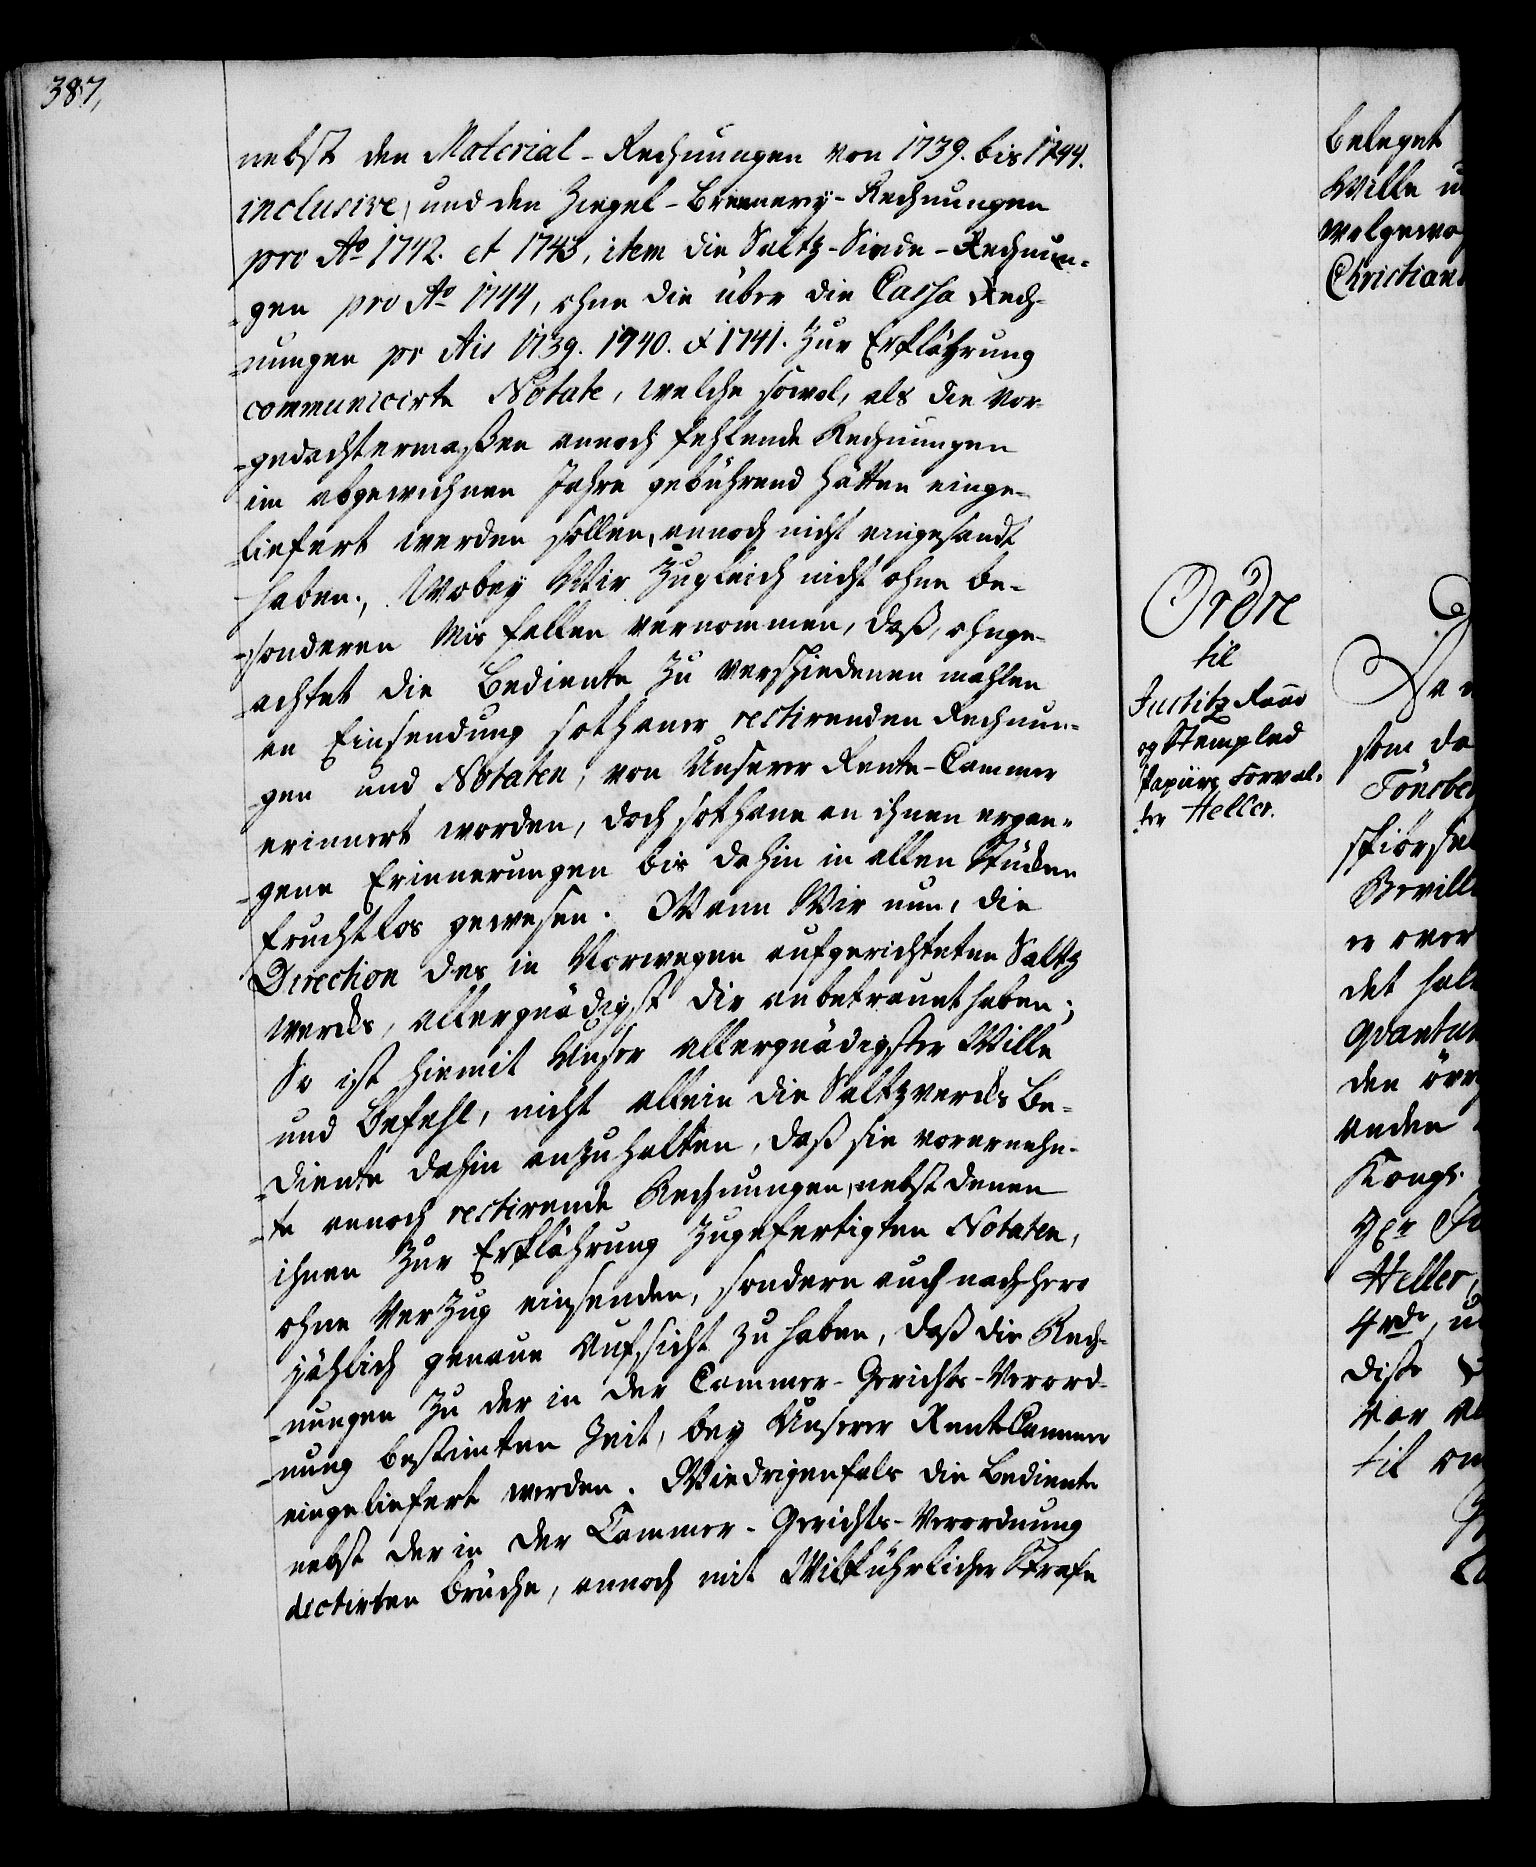 387,
nebst den Material-Rechnungen von 1739. bis 1744.
inclusive, und den Ziegel-Brennerey-Rechnungen
pro Ao 1742. et 1743, item die Saltz-Siede-Rechnun-
-gen pro Ao 1744, ohne die über die Cassa Rech-
-nungen pr Ais 1739. 1740. & 1741. zur Erklährung
communicirte Notate, welche sowol, als die vor-
-gedachtermaßen annoch fehlende Rechnungen
im abgewichnen Jahre gebührend hätten einge-
-liefert werden sollen, annoch nicht eingesandt
haben., Wobey Wir zugleich nicht ohne be-
-sonderen Misfallen vernommen, daß, ohnge-
-achtet die Bediente zu verschiedenen mahlen
an Einsendung sothaner restirenden Rechnun-
-gen und Notaten, von Unserer Rente-Cammer
erinnert worden, doch sothane an ihnen ergan-
-gene Erinnerungen bis dahin in allen Stücken
fruchtlos gewesen. Wann Wir nun, die
Direction des in Norwegen aufgerichteten Saltz
wercks, allergnädigst dir anbetrauet haben;
So ist hiemit Unser allergnädigster Wille
und Befehl, nicht allein die Saltzwercks Be-
-diente dahin anzuhalten, daß sie vorerwehn-
-te annoch restirende Rechnungen, nebst denen
ihnen zur Erklährung zugefertigten Notaten,
ohne Verzug einsenden, sondern auch nachhero
jählich genaue Aufsicht zu haben, daß die Rech-
-nungen zu der in der Cammer-Gerichts-Verord-
-nung bestimten Zeit, bey Unserer RenteCammer
eingeliefert werden. Wiedrigenfals die Bediente
nebst der in der Cammer-Gerichts-Verordnung
dictirten Brüche, annoch mit Wilkührlicher Strafe
Ordre
til
Justitz Raad
og Stempled
Papiirs Forval-
-ter Heller.
belegt
Wille u
wolgewo
Christian
som da
Tönsber
Bevill
er over
det hal
qvantum
den övr
anden
Kongs.
Heller,
4rde, u
disse
var
til om